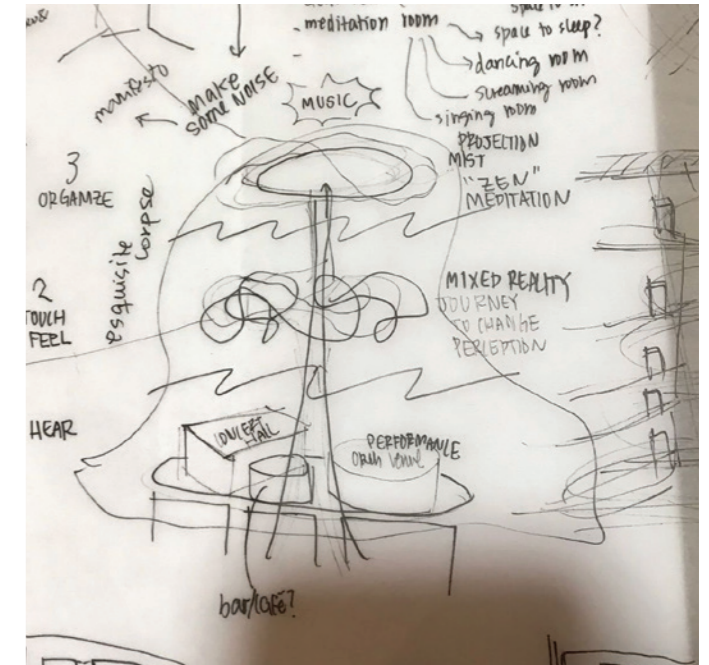 meditation room
space to sleep?
dancing room
screaming room
singing room
manifesto
make
some NOISE
MUSIC
PROJECTION
MIST
"ZEN"
MEDITATION
3
ORGAMZE
esquisite
corpse
2
TOUCH
FEEL
MIXED REALITY
JOURNEY
TO CHANGE
PERCEPTION
HEAR
CONCERT
HALL
PERFORMANCE
bar/café?